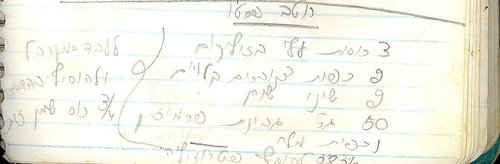 רוטב פסטו
3 כוסות עלי בזיליקום
2 כפות צנוברים קלויים
2 שיני שום
50 גר' גבינת פרמיזן
וכפית מלח
פטרוזיליה
ולהוסיף בהדרגה
3/4 כוס שמן זית